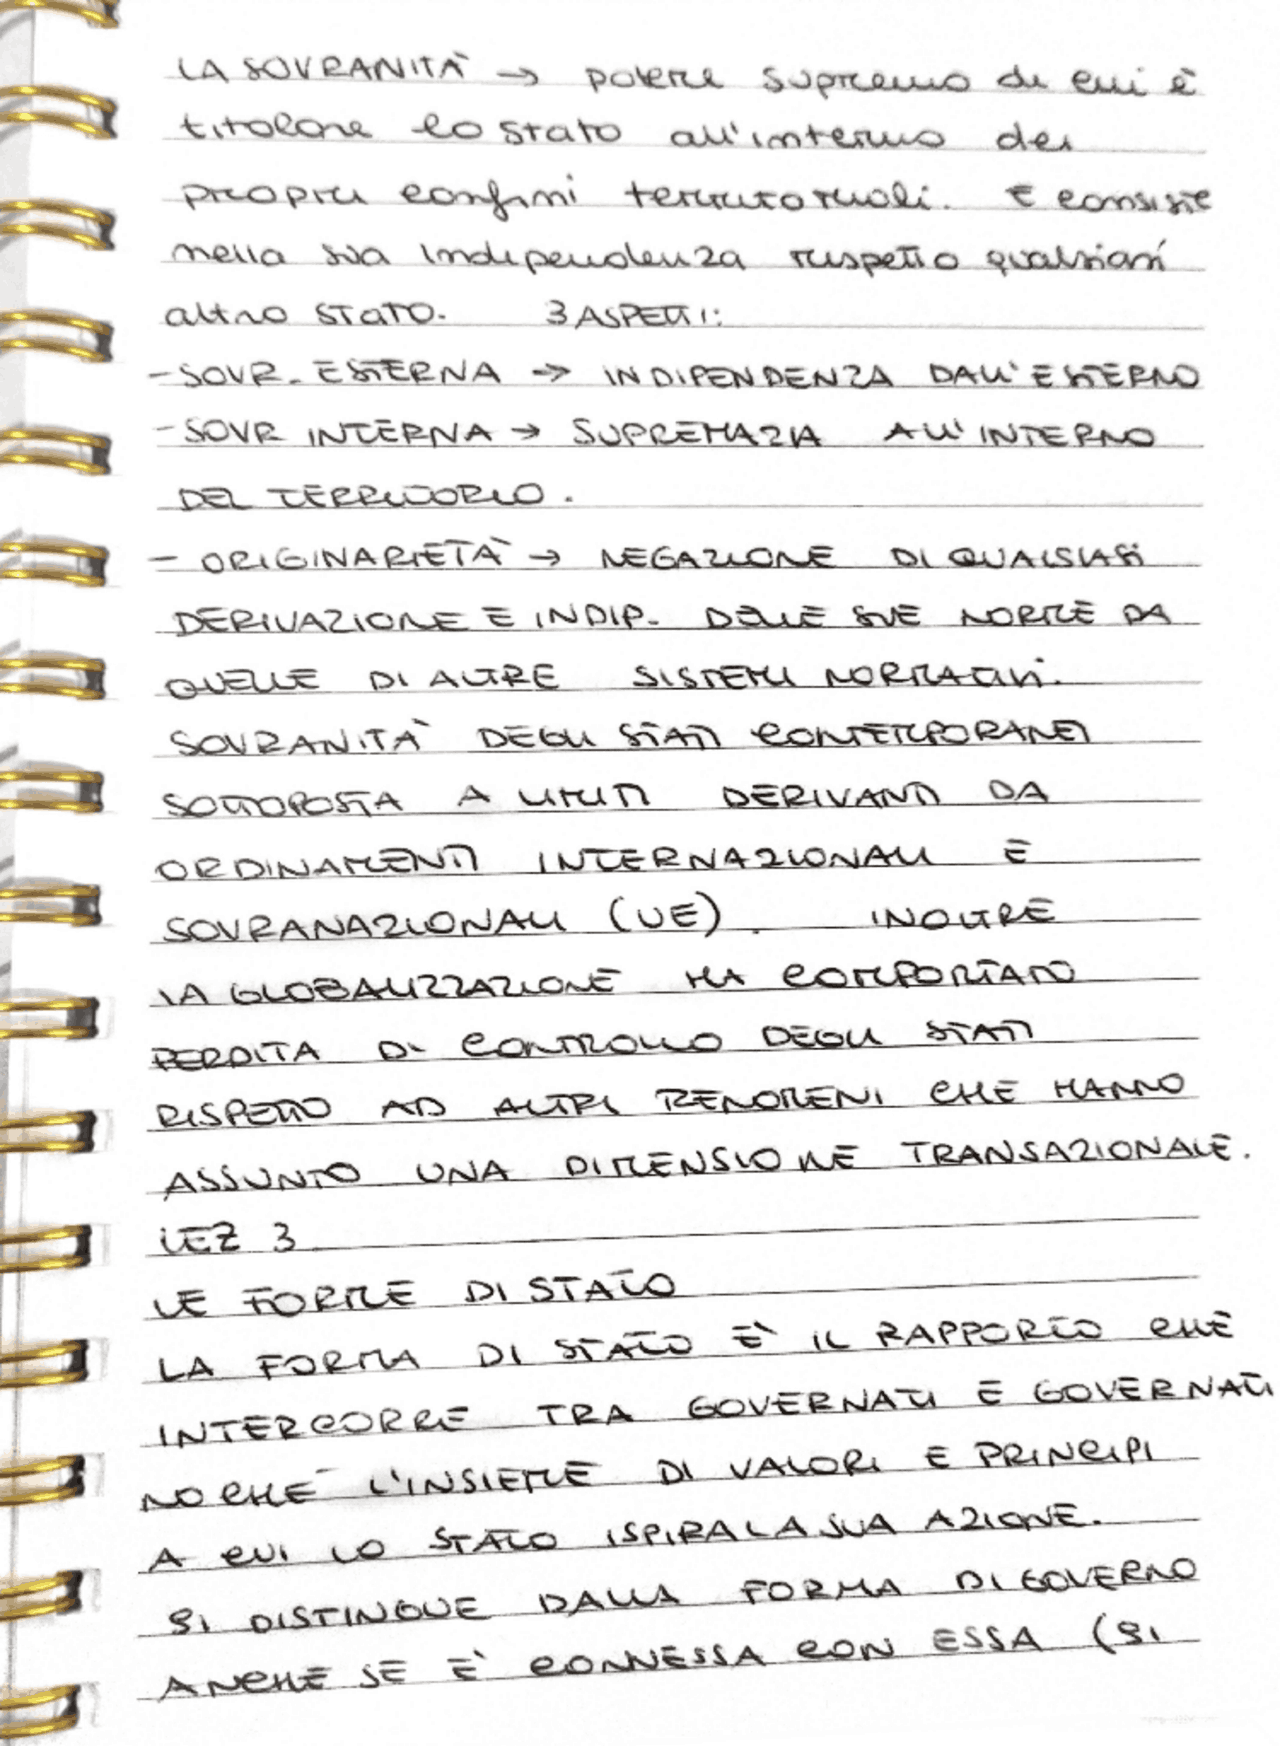 LA SOVRANITÀ → potere supremo di cui è
titolare lo stato all'interno dei
propri confini territoriali. E consiste
nella sua indipendenza rispetto qualsiasi
altro stato. 3 ASPETTI:
- SOVR. ESTERNA → INDIPENDENZA DALL'ESTERNO
- SOVR INTERNA → SUPREMAZIA ALL'INTERNO
DEL TERRITORIO.
- ORIGINARIETÀ → NEGAZIONE DI QUALSIASI
DERIVAZIONE E INDIP. DELLE SUE NORME DA
QUELLE DI ALTRE SISTEMI NORMATIVI.
SOVRANITÀ DEGLI STATI CONTEMPORANEI
SOTTOPOSTA A LIMITI DERIVANTI DA
ORDINAMENTI INTERNAZIONALI E
SOVRANAZIONALI (UE). INOLTRE
LA GLOBALIZZAZIONE HA COMPORTATO
PERDITA DI CONTROLLO DEGLI STATI
RISPETTO AD ALTRI FENOMENI CHE HANNO
ASSUNTO UNA DIMENSIONE TRANSAZIONALE.
LEZ 3
LE FORME DI STATO
LA FORMA DI STATO È IL RAPPORTO CHE
INTERCORRE TRA GOVERNATI E GOVERNATI
NOCHÉ L'INSIEME DI VALORI E PRINCIPI
A CUI LO STATO ISPIRA LA SUA AZIONE.
SI DISTINGUE DALLA FORMA DI GOVERNO
ANCHE SE È CONNESSA CON ESSA (SI